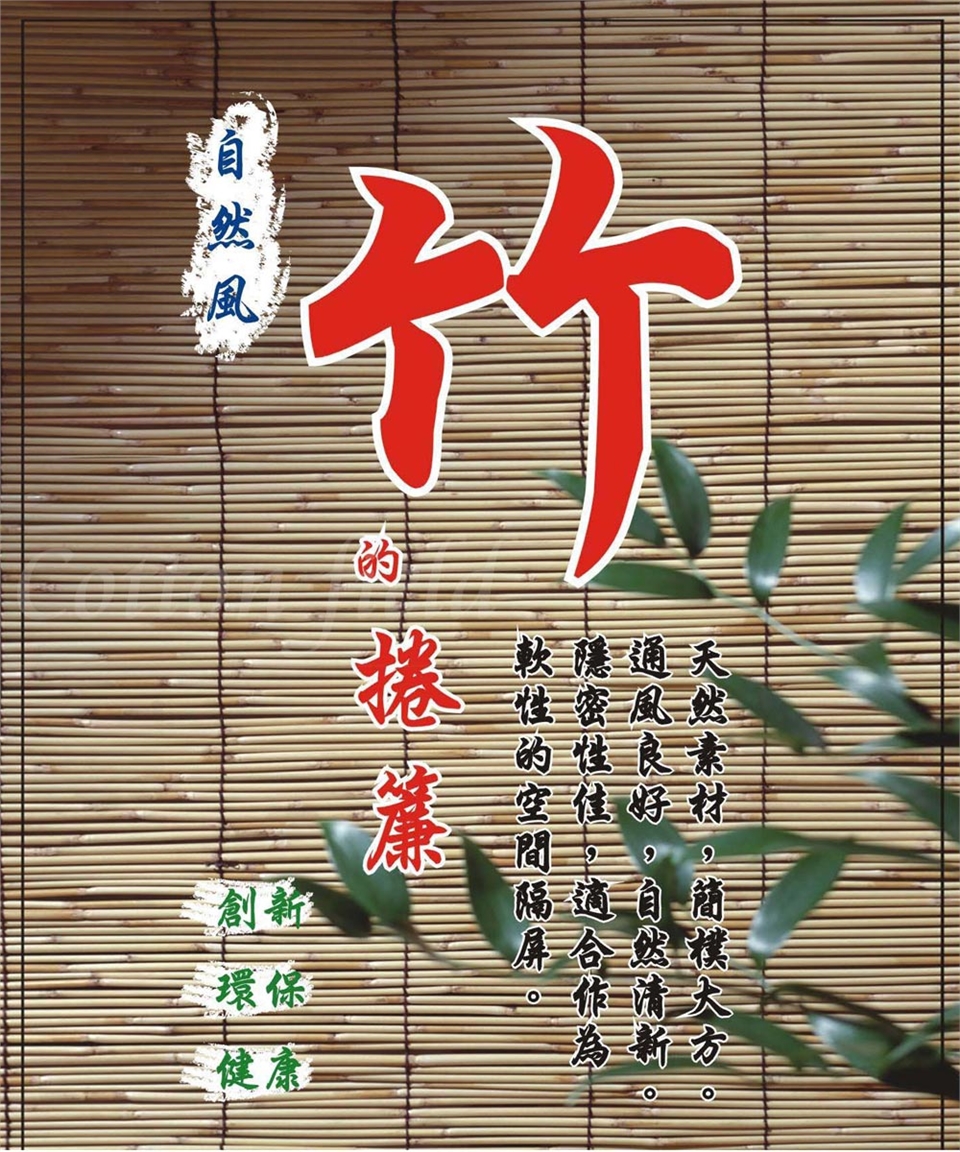 自然風
竹
的捲簾
天然素材，簡樸大方。
通風良好，自然清新。
隱密性佳，適合作為
軟性的空間隔屏。
創新
環保
健康
Cotton field